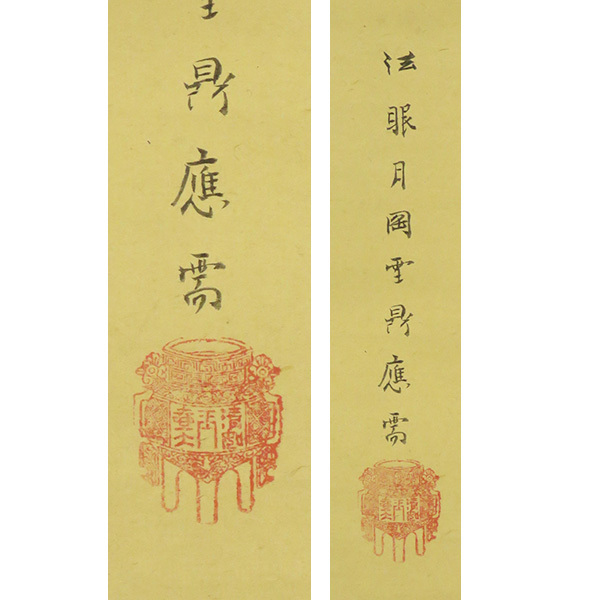 鼎應需
法眼月岡雪鼎應需